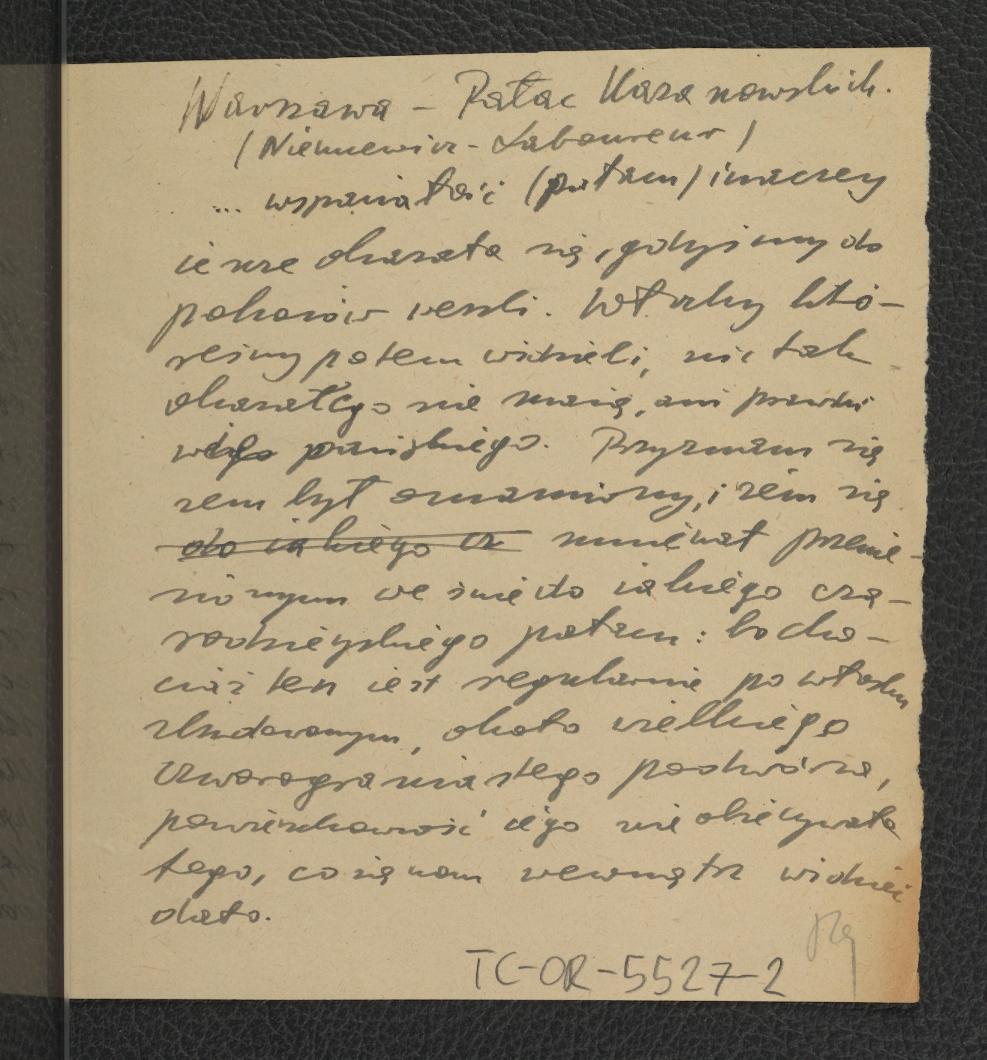 Warszawa – Pałac Kazanowskich.
(Niemcewicz - Laboureur)
... wspaniałość (pałacu) inaczey
ieszcze okazała się, gdyśmy do
pokoiów weszli. Włochy któ-
reśmy potem widzieli, nic tak
okazałego nie maią, ani prawdzi
wego pańskiego. Przyznam się
żem był omamiony, i żem się
do iakiego cz mniemał przenie-
sionym we śnie do iakiego cza-
rodzieyskiego pałacu: bo cho-
ciaż ten iest regularnie po włosku
zbudowanym, około wielkiego
czworograniastego podwórza,
powierzchowność iego nie obiecywała
tego, co się nam wewnątrz widzieć
dało.
TC-OR-5527-2